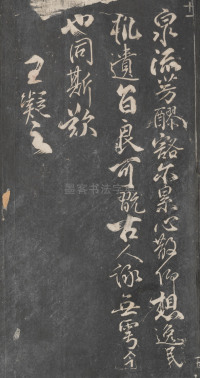 泉流芳醪豁尒累心散仰想逸民
軌遺音良可翫古人詠舞雩今
也同斯歎
王凝之
墨客书法字